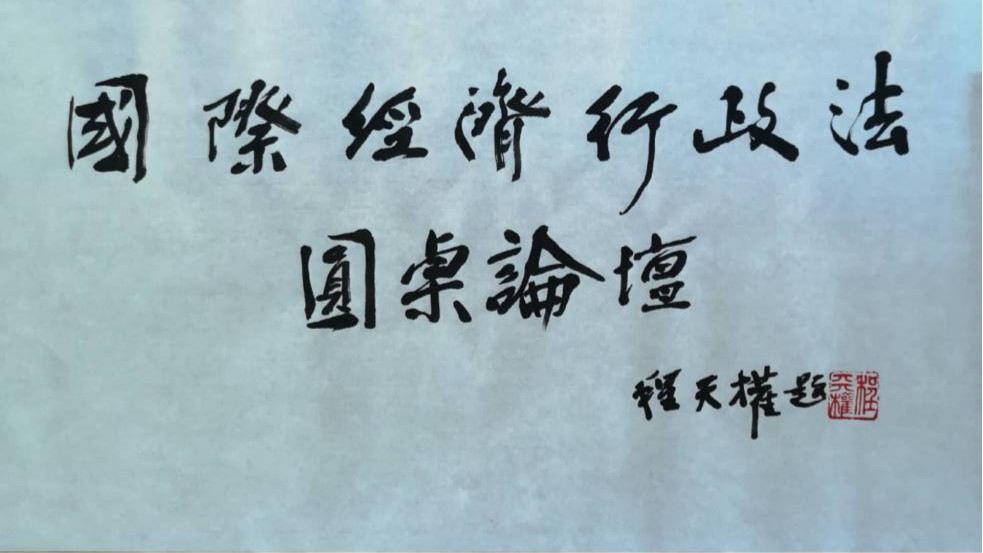 國際經濟行政法
圓桌論壇
程天權題
程天權